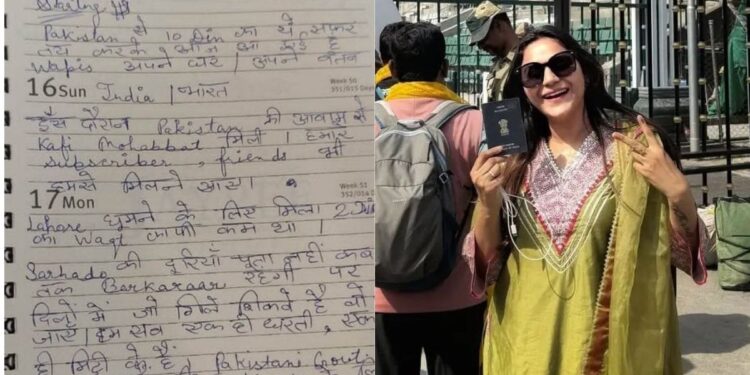 Pakistan से 10 Din का ये सफर
तय करके आज आ गई है
Wapis अपने घर । अपने वतन
Week 50
16 Sun India । भारत
इस दौरान Pakistan की आवाम से
Kafi Mohabbat मिली । हमारे
subscriber, friends भी
हमसे मिलने आए ।
Week 51
17 Mon
Lahore घूमने के लिए मिला 2 दिन
का Waqt काफी कम था ।
Sarhado की दूरियाँ पता नहीं कब
तक Barkaraar रहेगी पर
दिलों में जो गिले शिकवे है वो
जाएं । हम सब एक ही धरती, एक
ही मिट्टी के है । Pakistani